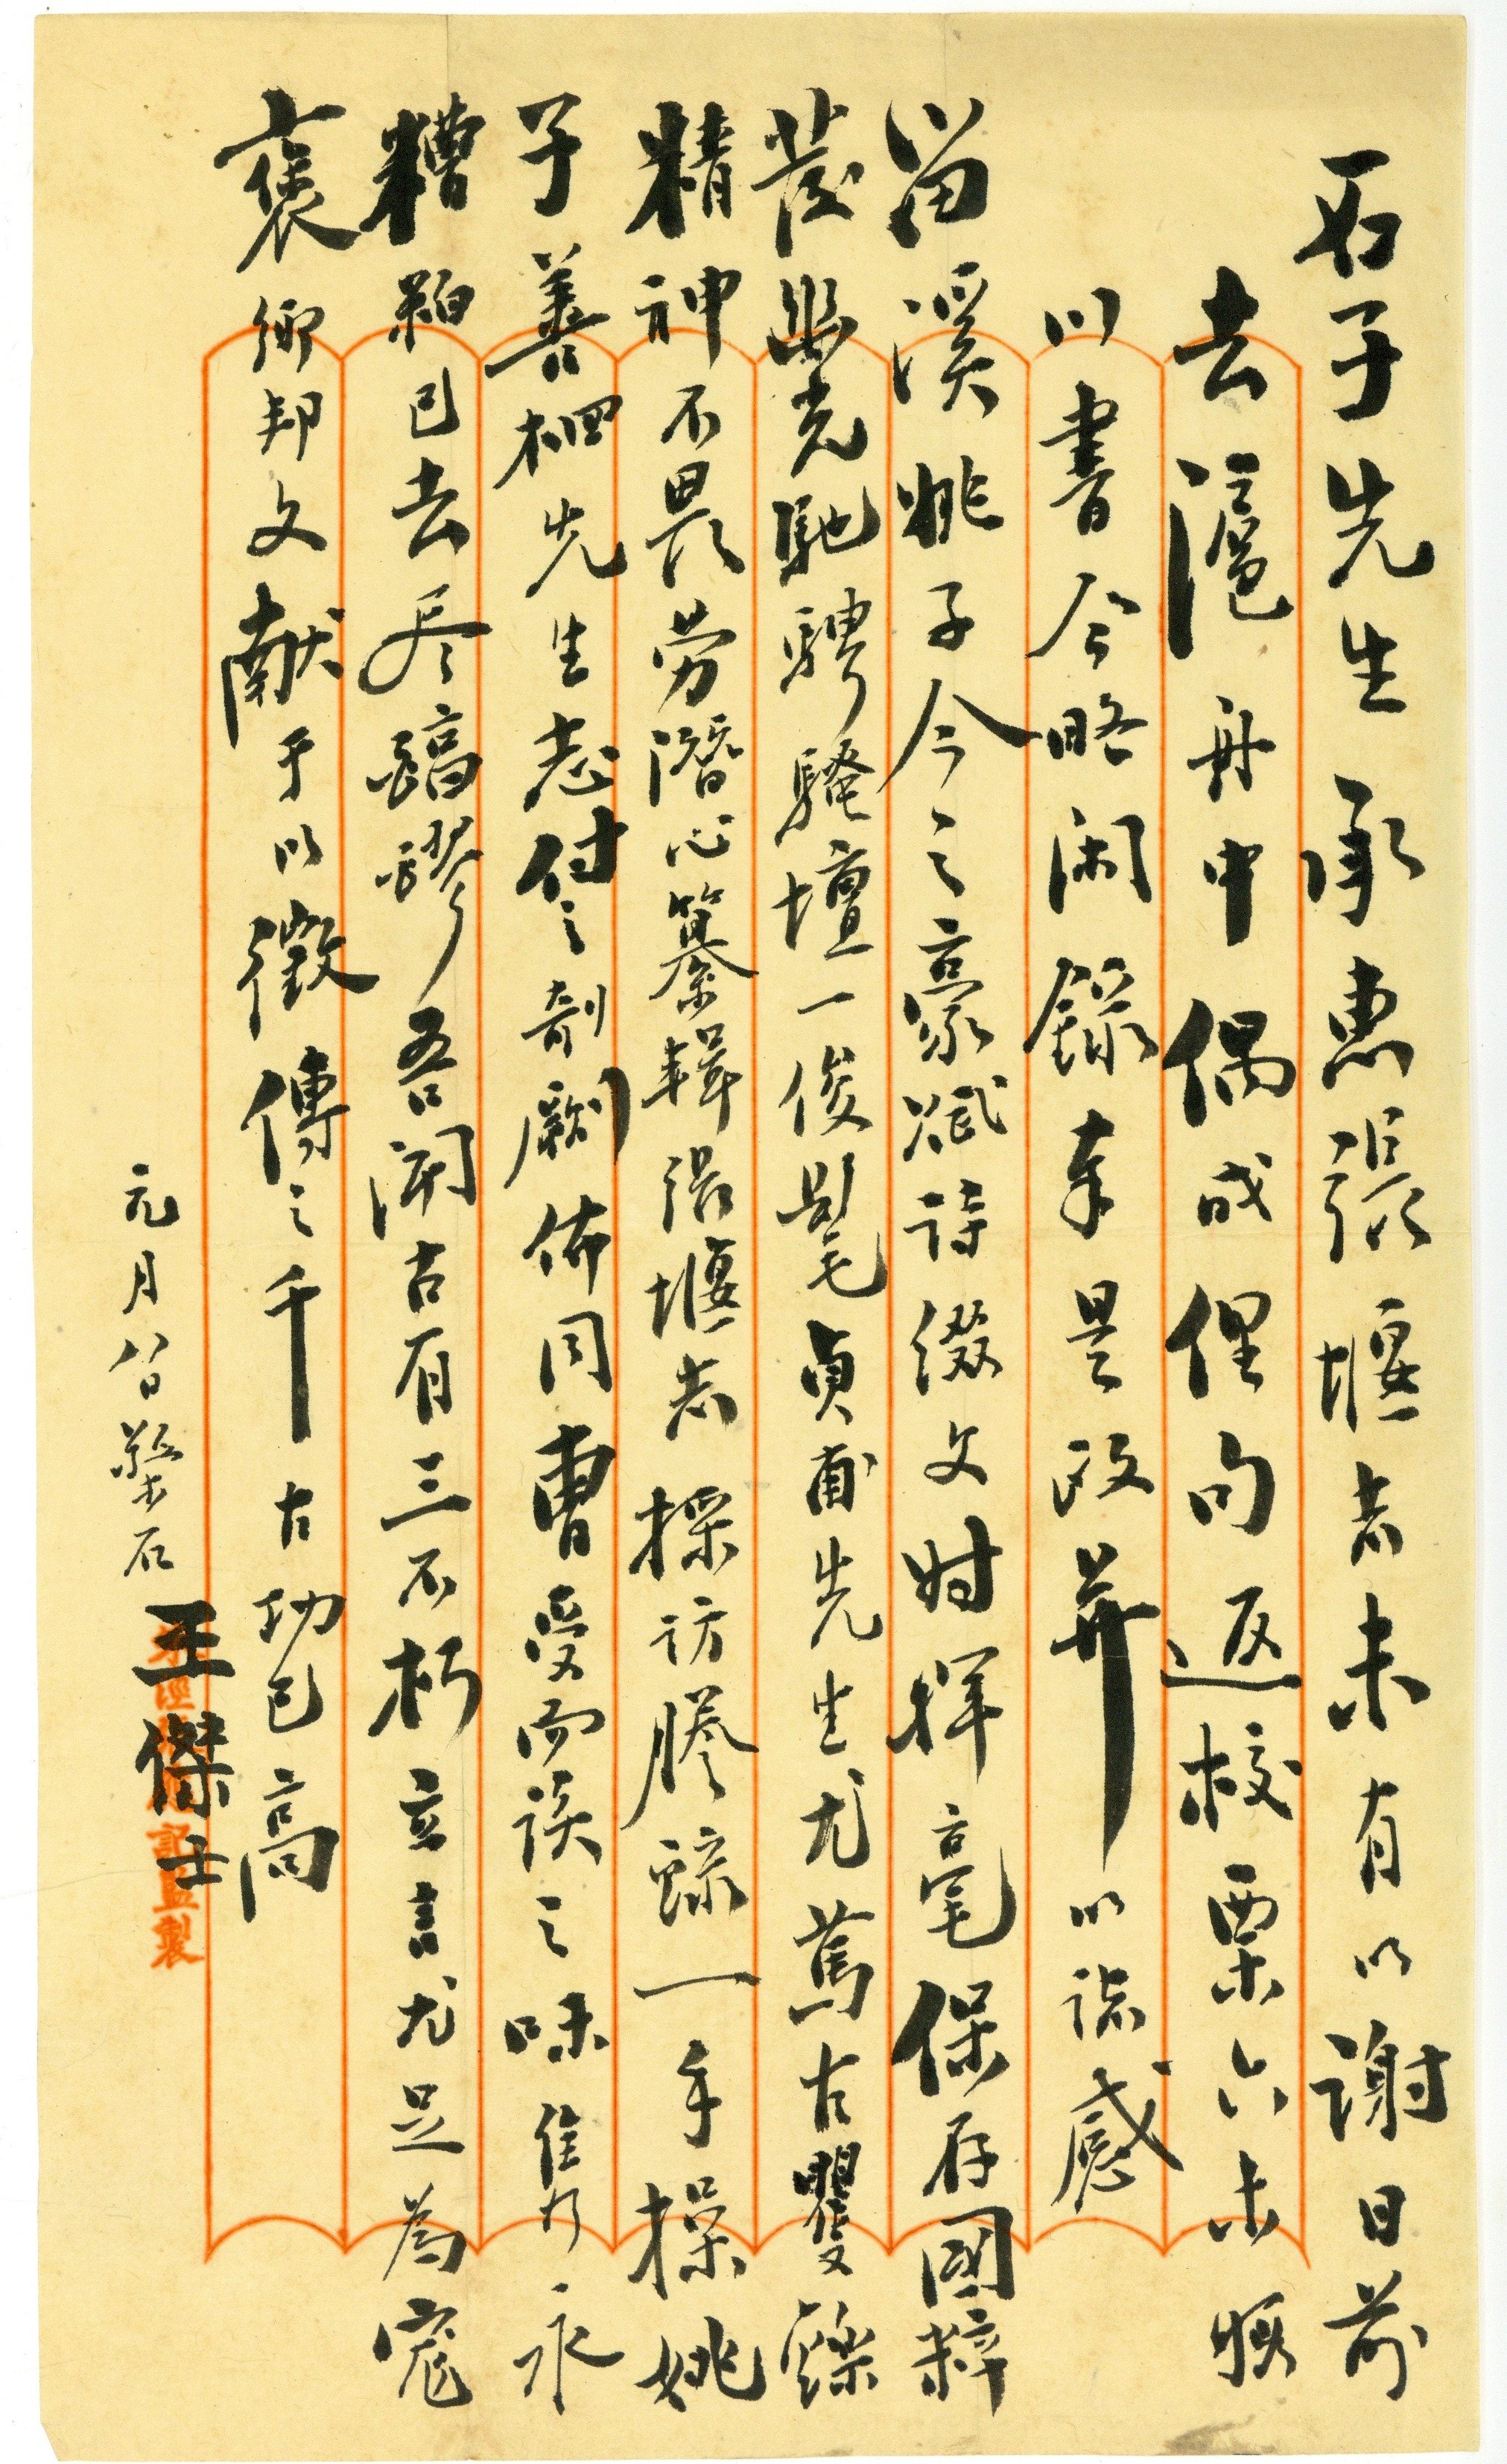 石子先生承惠張堰志未有以謝日前
去滬舟中偶成俚句返校栗六未暇
以書今略閑錄奉是政并以誌感
留溪姚子今之豪賦詩綴文時揮毫保存國粹
發幽光馳騁騷壇一俊髦貞甫先生尤篤古矍鑠
精神不畏勞潛心纂輯張堰志採訪謄錄一手操姚
子善体先生志付之剞劂佈同曹受而讀之味雋永
糟粕已去尽譌謬吾聞古有三不朽立言尤足為寵
褒鄉邦文献于以徵傳之千古功已高
元月八日 磐石
王傑士
記監製